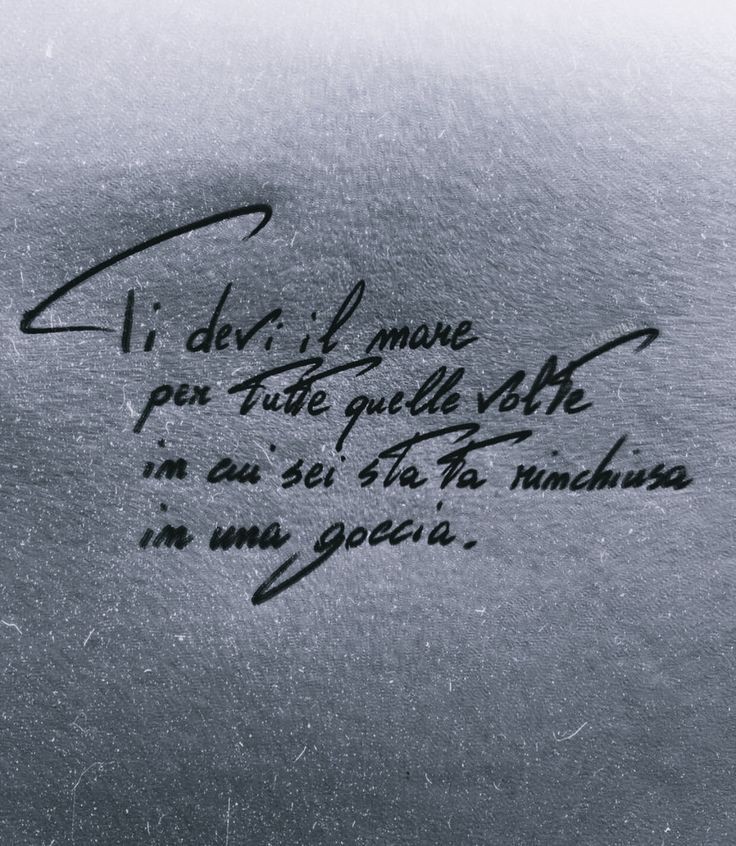 Ti devi il mare
per tutte quelle volte
in cui sei stata rinchiusa
in una goccia.